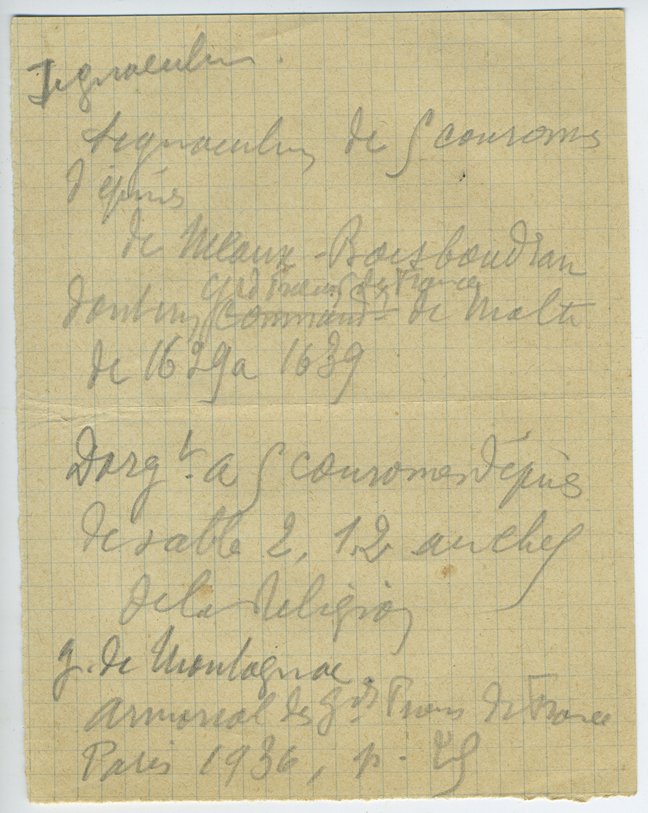 Signaculum.
Signaculum de 5 couronnes
d'épines
de Meaux-Boisboudran
grd Prieur de France
command de Malte
de 1629 a 1639
D'argt. a 5 couronnes d'épines
de sable 2, 1.2 au chef
de la Religion
G. de Montagnac.
Armorial des Gds Prieurs de France
Paris 1936, p.